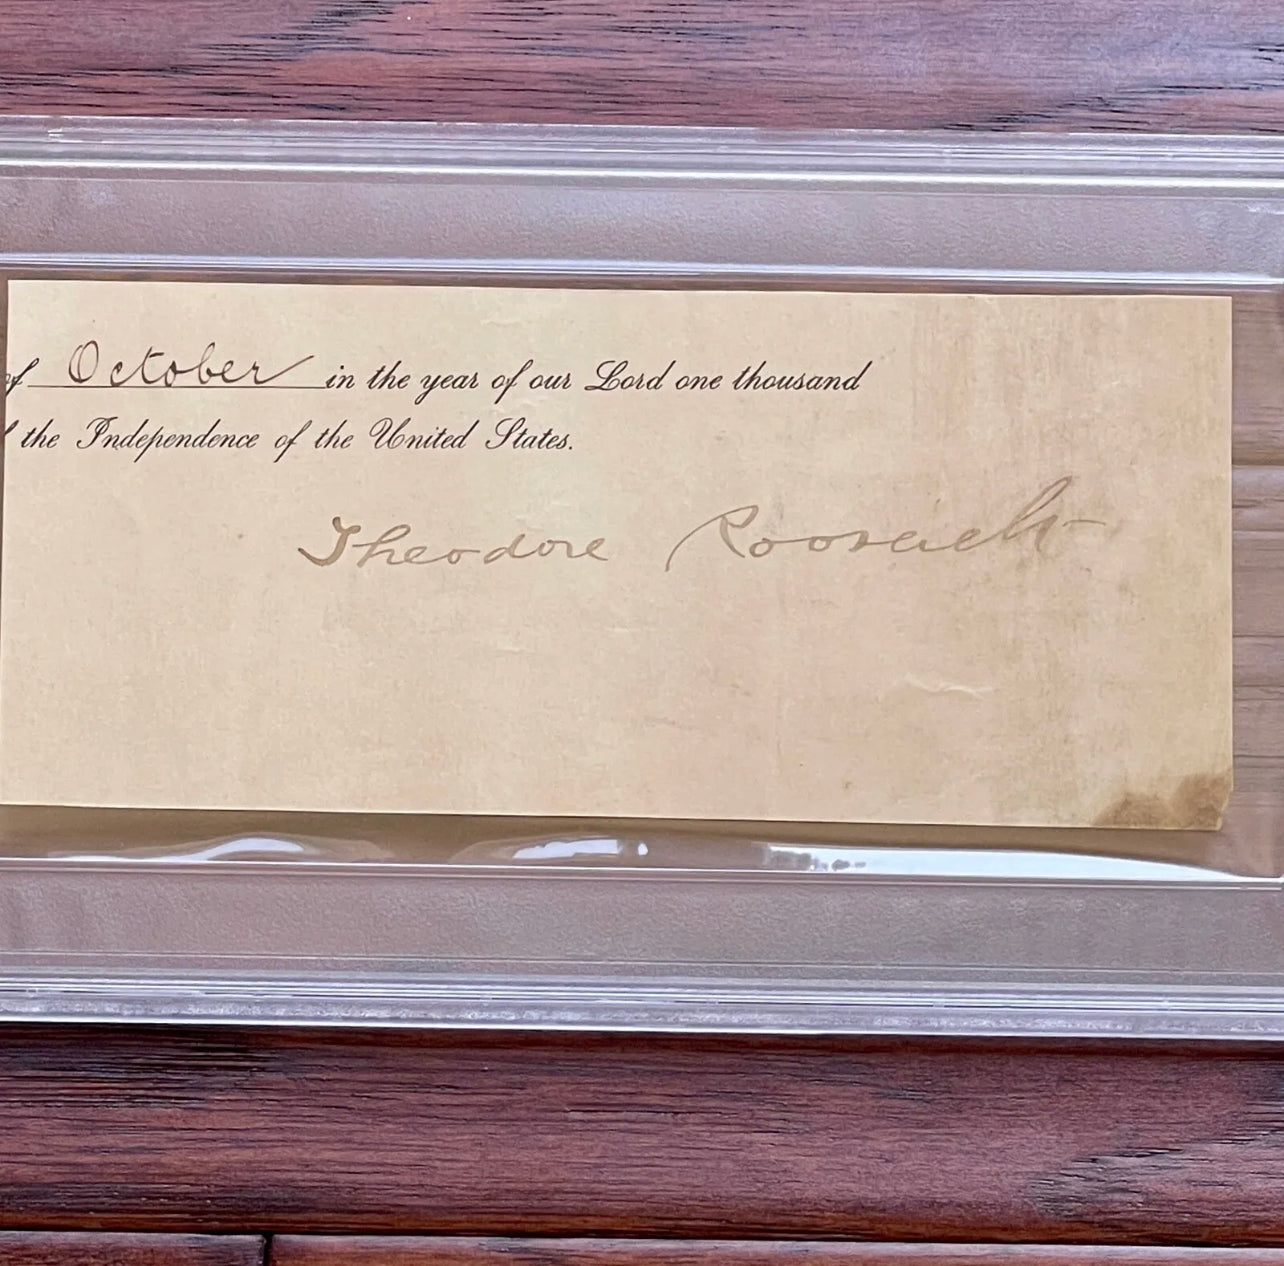 of October in the year of our Lord one thousand
the Independence of the United States.
Theodore Roosevelt